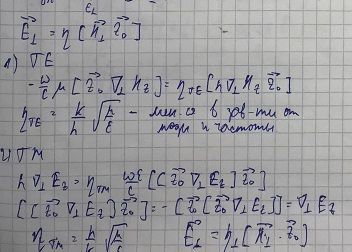 E⃗⊥ = η [ H⃗⊥ z⃗₀ ]
1) TE
- ω/c μ [ z⃗₀ ∇⊥ H_z ] = η_TE [ h ∇⊥ H_z z⃗₀ ]
η_TE = k/h √(μ/ε) – мен-ся в зав-ти от
моды и частоты
2) TM
h ∇⊥ E_z = η_TM ωε/c [ [ z⃗₀ ∇⊥ E_z ] z⃗₀ ]
[ [ z⃗₀ ∇⊥ E_z ] z⃗₀ ] = - [ z⃗₀ [ z⃗₀ ∇⊥ E_z ] ] = ∇⊥ E_z
η_TM = h/k √(μ/ε) E⃗⊥ = η⊥ [ H⃗⊥ · z⃗₀ ]